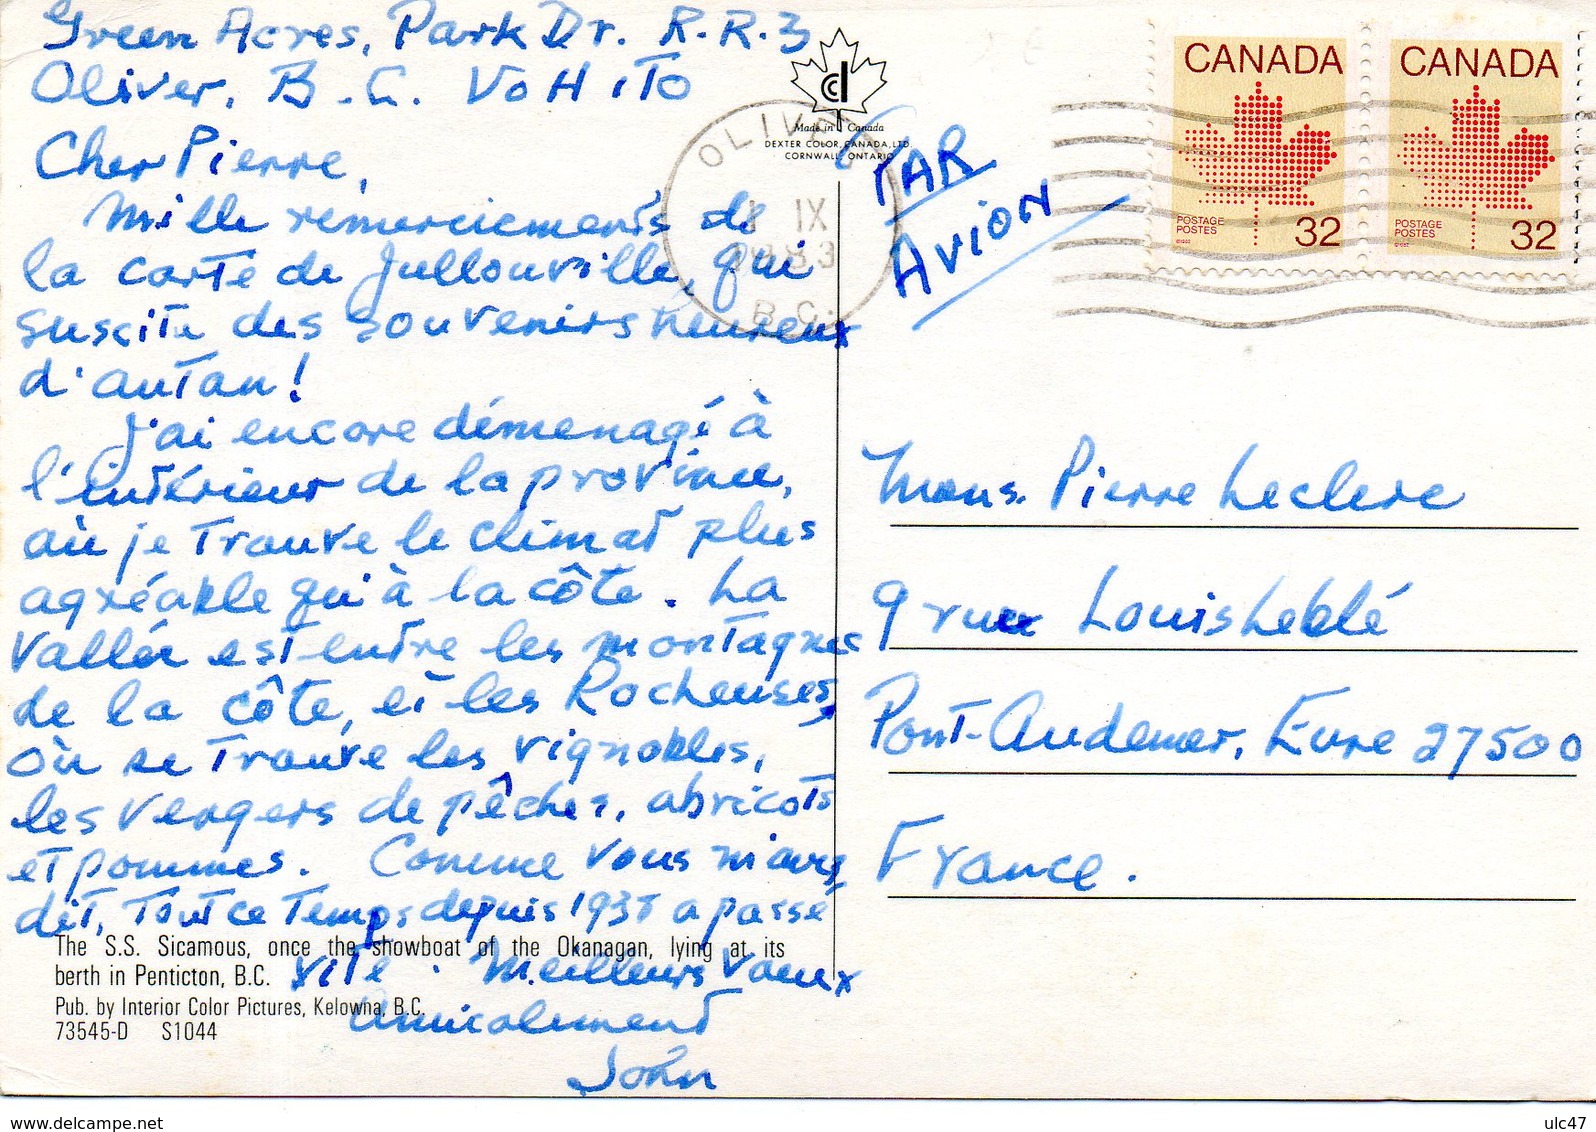 Green Acres, Park Dr. R.R.3
Oliver, B.C. V0H 1T0
Cher Pierre,
Mille remerciements de
la carte de Jullouville, qui
suscite des souvenirs heureux
d'autan!
J'ai encore déménagé à
l'intérieur de la province,
où je trouve le climat plus
agréable qu'à la côte. La
Vallée est entre les montagnes
de la côte, et les Rocheuses,
où se trouve les vignobles,
les vergers de pêches, abricots
et pommes. Comme vous m'avez
dit, tout ce temps depuis 1935 a passé
vite. Meilleurs Vœux
Amicalement
John
The S.S. Sicamous, once the showboat of the Okanagan, lying at its
berth in Penticton, B.C.
Pub. by Interior Color Pictures, Kelowna, B.C.
73545-D S1044
Made in Canada
DEXTER COLOR, CANADA, LTD.
CORNWALL, ONTARIO
OLIVER
IX
1983
B.C.
PAR
AVION
CANADA
POSTAGE
POSTES
32
CANADA
POSTAGE
POSTES
32
Mons. Pierre Leclerc
9 rue Louis Leblé
Pont-Audemer, Eure 27500
France.
www.delcampe.net
ulc47